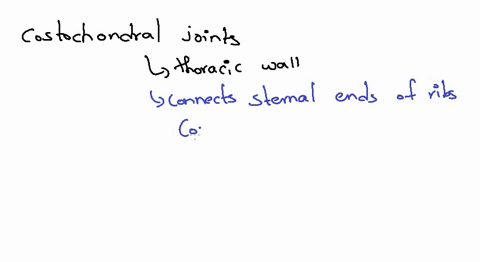 Costochondral joints
↳ thoracic wall
↳ connects sternal ends of ribs
Co